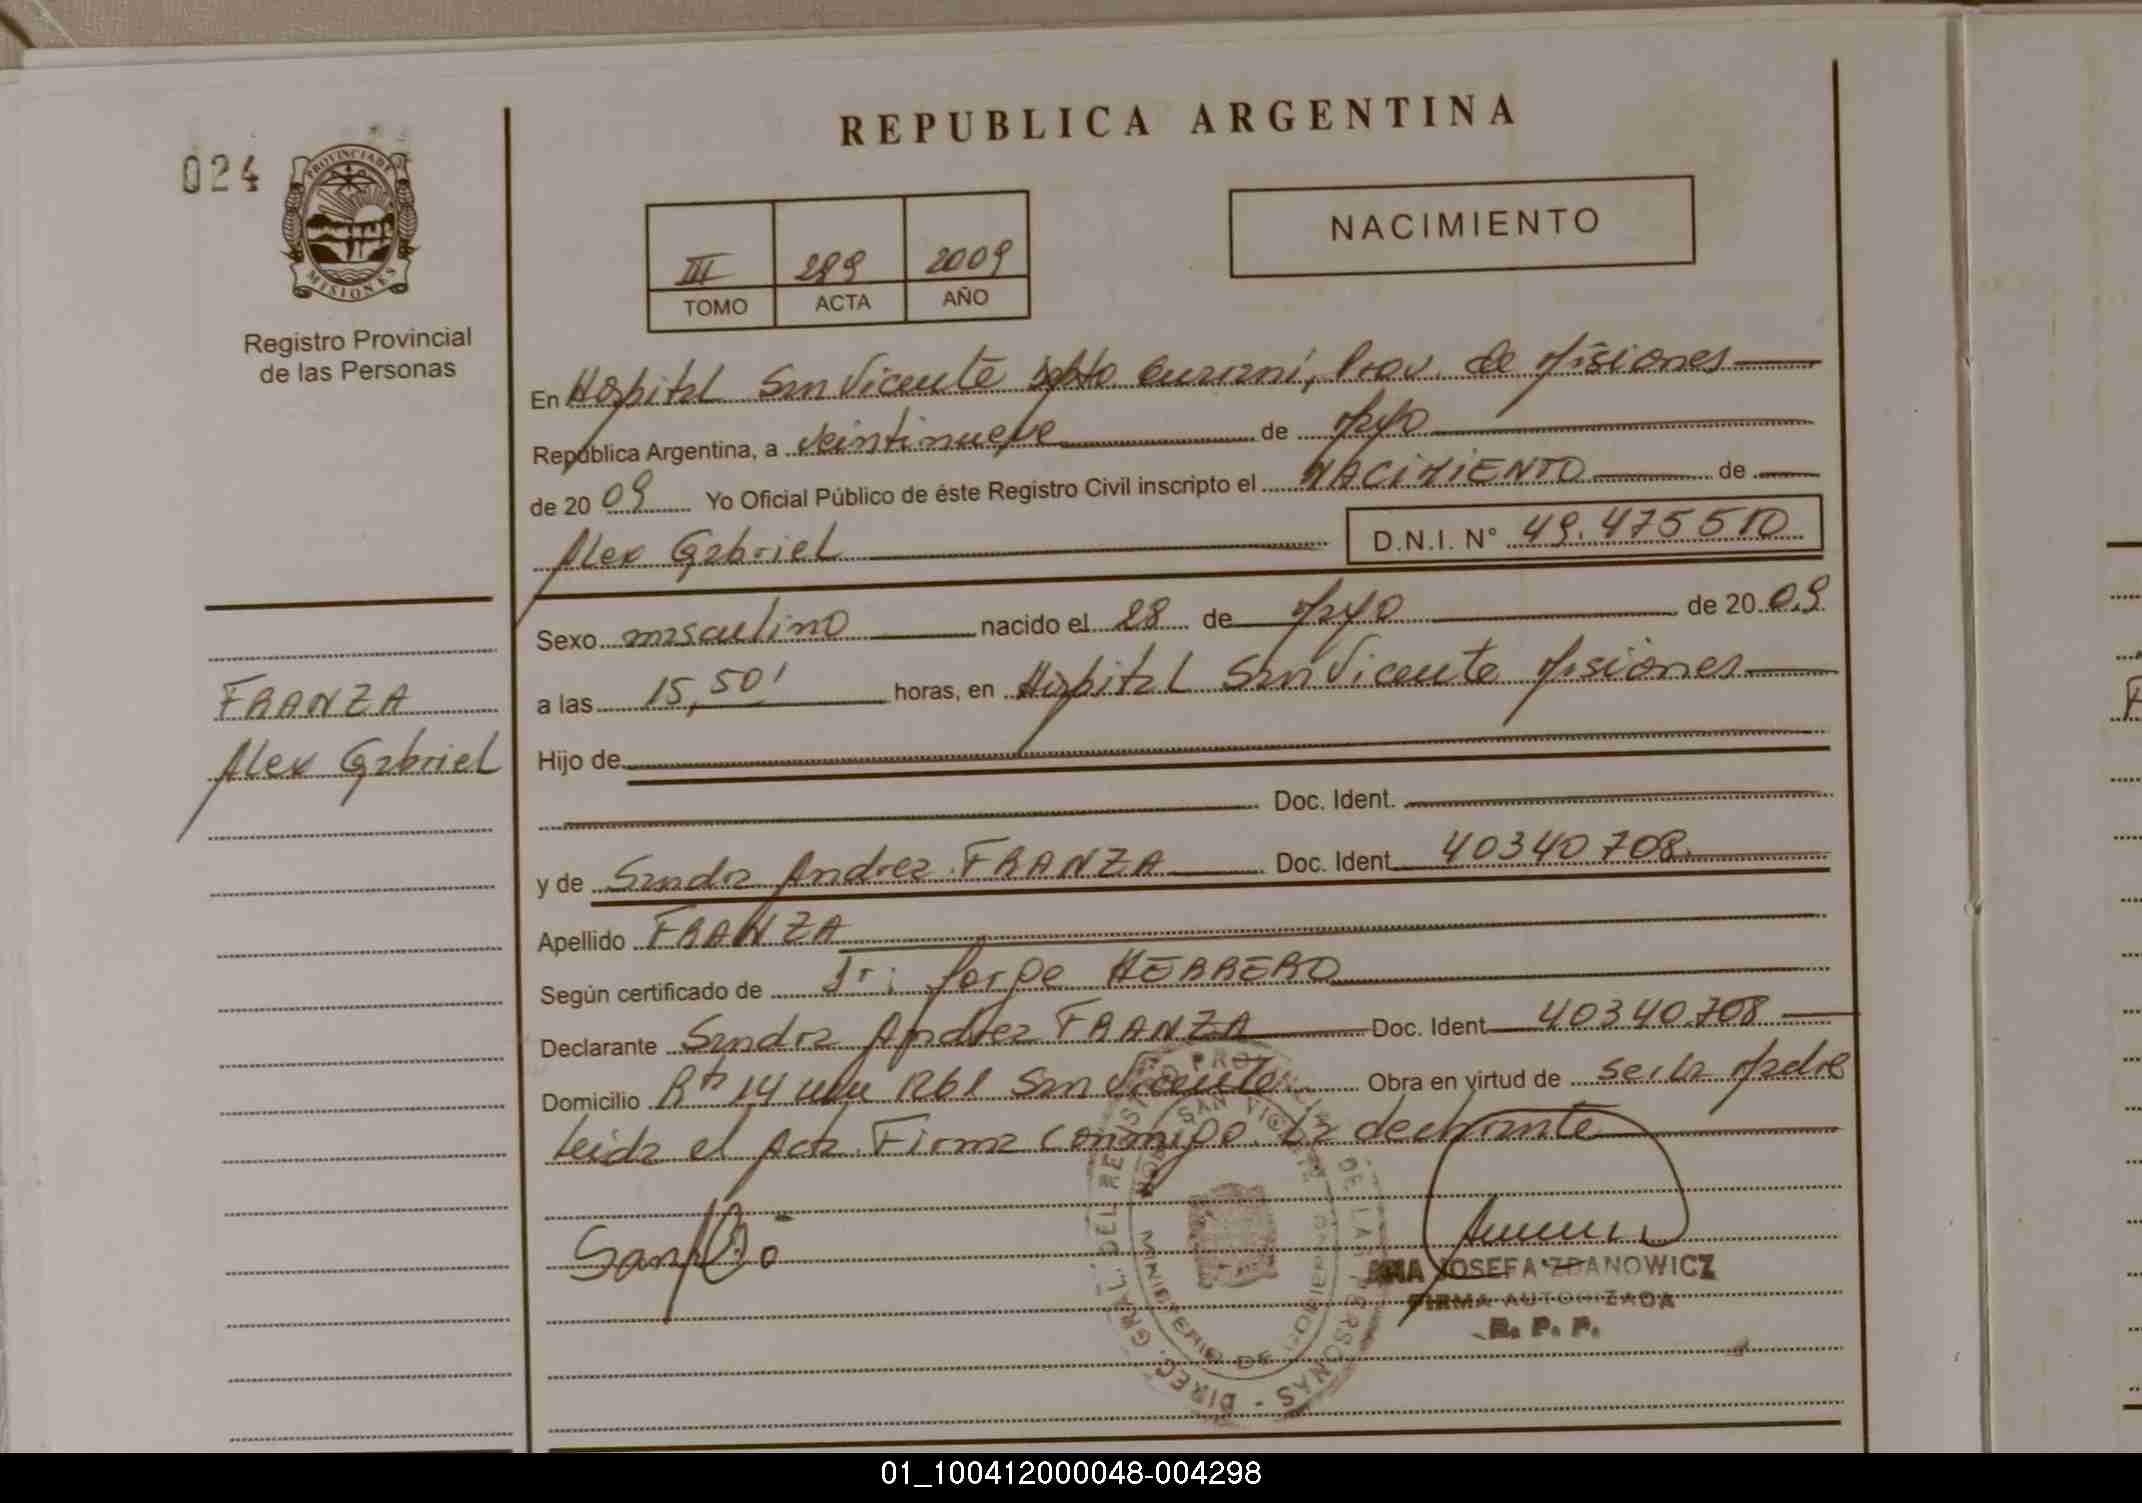 REPUBLICA ARGENTINA
024
PROVINCIA DE
MISIONES
Registro Provincial
de las Personas
III 289 2009
TOMO ACTA AÑO
NACIMIENTO
En Hospital San Vicente Dpto Guarani, Prov. de Misiones
República Argentina, a veintinueve de Mayo
de 2009 Yo Oficial Público de éste Registro Civil inscripto el NACIMIENTO de
Alex Gabriel D.N.I. N° 49.475510
Sexo masculino nacido el 28 de Mayo de 2009
a las 15,50' horas, en Hospital San Vicente Misiones
FRANZA
Alex Gabriel
Hijo de
Doc. Ident.
y de Sandra Andrea FRANZA Doc. Ident. 40340708
Apellido FRANZA
Según certificado de Dr: Jorge HERRERO
Declarante Sandra Andrea FRANZA Doc. Ident 40340.708
Domicilio Rta 14 1261 San Vicente Obra en virtud de ser la Madre
Leida el Acta Firma conmigo la declarante
ANA JOSEFA ZDANOWICZ
FIRMA AUTORIZADA
R. P. P.
DIREC. GRAL. DEL REGISTRO PROVINCIAL DE LAS PERSONAS
SAN VICENTE
MINISTERIO DE GOBIERNO
01_100412000048-004298